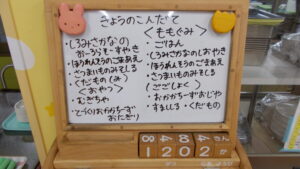 きょうのこんだて
・しろみさかなの
おーろらそーすやき
・ほうれんそうのごまあえ
・さつまいものみそしる
・くだもの(み)
<おやつ>
・むぎちゃ
おにぎり
<ももぐみ>
・ごはん
・しろみさかなのしおやき
・ほうれんそうのごまあえ
・さつまいものみそしる
<ごごしょく>
・おかかちーずおじや
・すましじる・くだもの
8 4 8 4
1 2 0 2